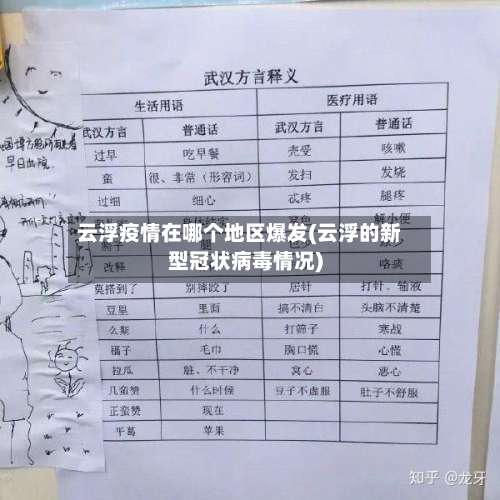 武汉方言释义
生活用语 医疗用语
武汉方言 普通话 武汉方言 普通话
过早 吃早餐 壳受 咳嗽
蛮 很、非常（形容词） 发扫 发烧
过细 细心 忒疼 腿疼
解小便
云浮疫情在哪个地区爆发(云浮的新
型冠状病毒情况)
改释 咯痰
莫搭到了 别摔跤了 居针 打针、输液
豆里 里面 搞不清白 头脑不清楚
么斯 什么 打筛子 寒战
毛巾 胸口慌 心慌
拉瓜 脏、不干净 窝心 恶心
几蛮赞 什么时候 豆子不虚服 肚子不舒服
正蛮赞 现在
平葛 苹果
早日出院
知乎 @龙牙